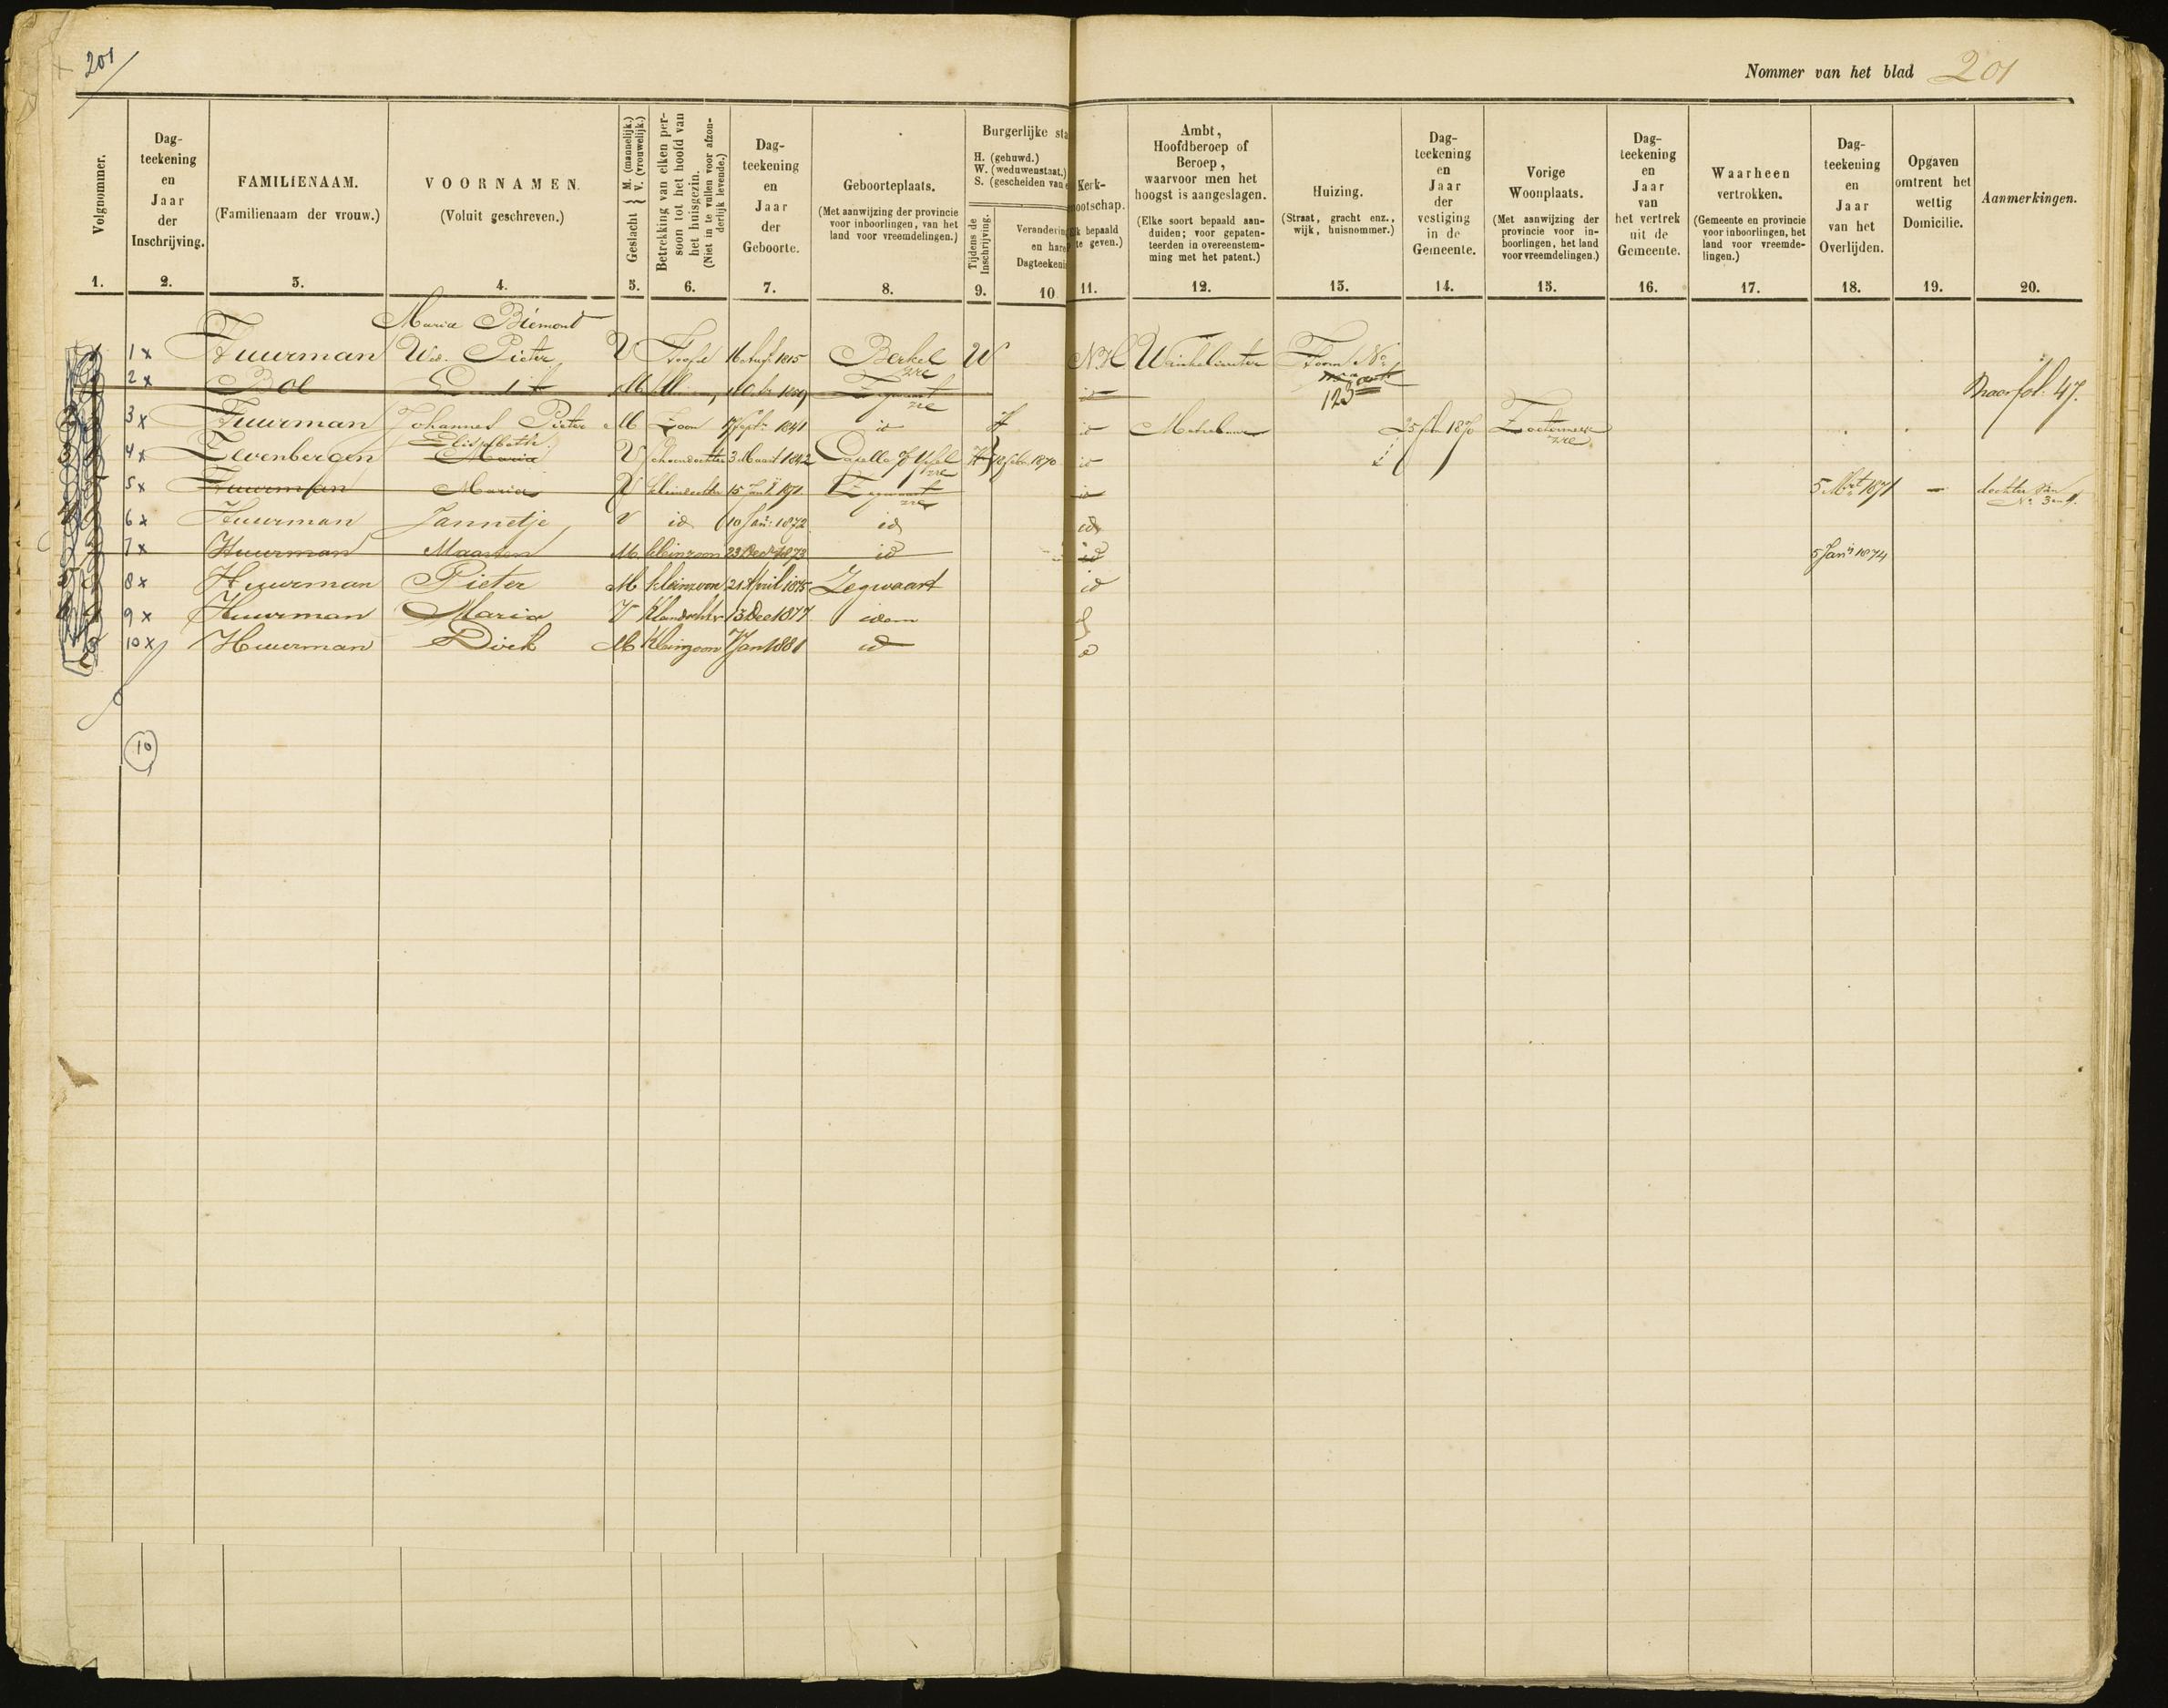 201
Nommer van het blad 201
Volgnommer.
Dag-
teekening
en
Jaar
der
Inschrijving.
FAMILIENAAM.
(Familienaam der vrouw.)
VOORNAMEN.
(Voluit geschreven.)
Geslacht M. (mannelijk.) V. (vrouwelijk.)
Betrekking van elken per-
soon tot het hoofd van
het huisgezin.
(Niet in te vullen voor afzon-
derlijk levende.)
Dag-
teekening
en
Jaar
der
Geboorte.
Geboorteplaats.
(Met aanwijzing der provincie
voor inboorlingen, van het
land voor vreemdelingen.)
Burgerlijke sta
H. (gehuwd.)
W. (weduwenstaat.)
S. (gescheiden van e
Tijdens de
Inschrijving.
Verandering
en hare
Dagteekeni
Kerk-
nootschap.
k bepaald
te geven.)
Ambt,
Hoofdberoep of
Beroep,
waarvoor men het
hoogst is aangeslagen.
(Elke soort bepaald aan-
duiden; voor gepaten-
teerden in overeenstem-
ming met het patent.)
Huizing.
(Straat, gracht enz.,
wijk, huisnommer.)
Dag-
teekening
en
Jaar
der
vestiging
in de
Gemeente.
Vorige
Woonplaats.
(Met aanwijzing der
provincie voor in-
boorlingen, het land
voor vreemdelingen.)
Dag-
teekening
en
Jaar
van
het vertrek
uit de
Gemeente.
Waarheen
vertrokken.
(Gemeente en provincie
voor inboorlingen, het
land voor vreemde-
lingen.)
Dag-
teekening
en
Jaar
van het
Overlijden.
Opgaven
omtrent het
wettig
Domicilie.
Aanmerkingen.
1. 2. 3. 4. 5. 6. 7. 8. 9. 10 11. 12. 13. 14. 15. 16. 17. 18. 19. 20.
Maria Biemond
1 x Huurman Wed. Pieter V Hoofd 1815 Berkel W N H Winkelierster
zre
2 x Bol M id Naar fol. 47.
zre 123
3 x Huurman Johannes Pieter M Zoon 17 Sept. 1841 id H id Metselaar Zoetermeer
zre
Elisabeth
4 x Maria V schoondochter 3 Maart 1842 Capelle a/d Yssel H 1870 id
zre
5 x Huurman Maria V kleindochter 15 1871 Zegwaart id 5 Mrt 1871 – dochter van
zre No 3 en 4.
6 x Huurman Jannetje V id 10 Jan: 1872 id id
7 x Huurman Maarten M kleinzoon 23 Dec 1873 id id 5 Jan 1874
8 x Huurman Pieter M kleinzoon 21 April 1875 Zegwaart id
9 x Huurman Maria V 13 Dec 1877 idem
10 x Huurman Dirk M Kleinzoon 7 Jan 1881 id
10